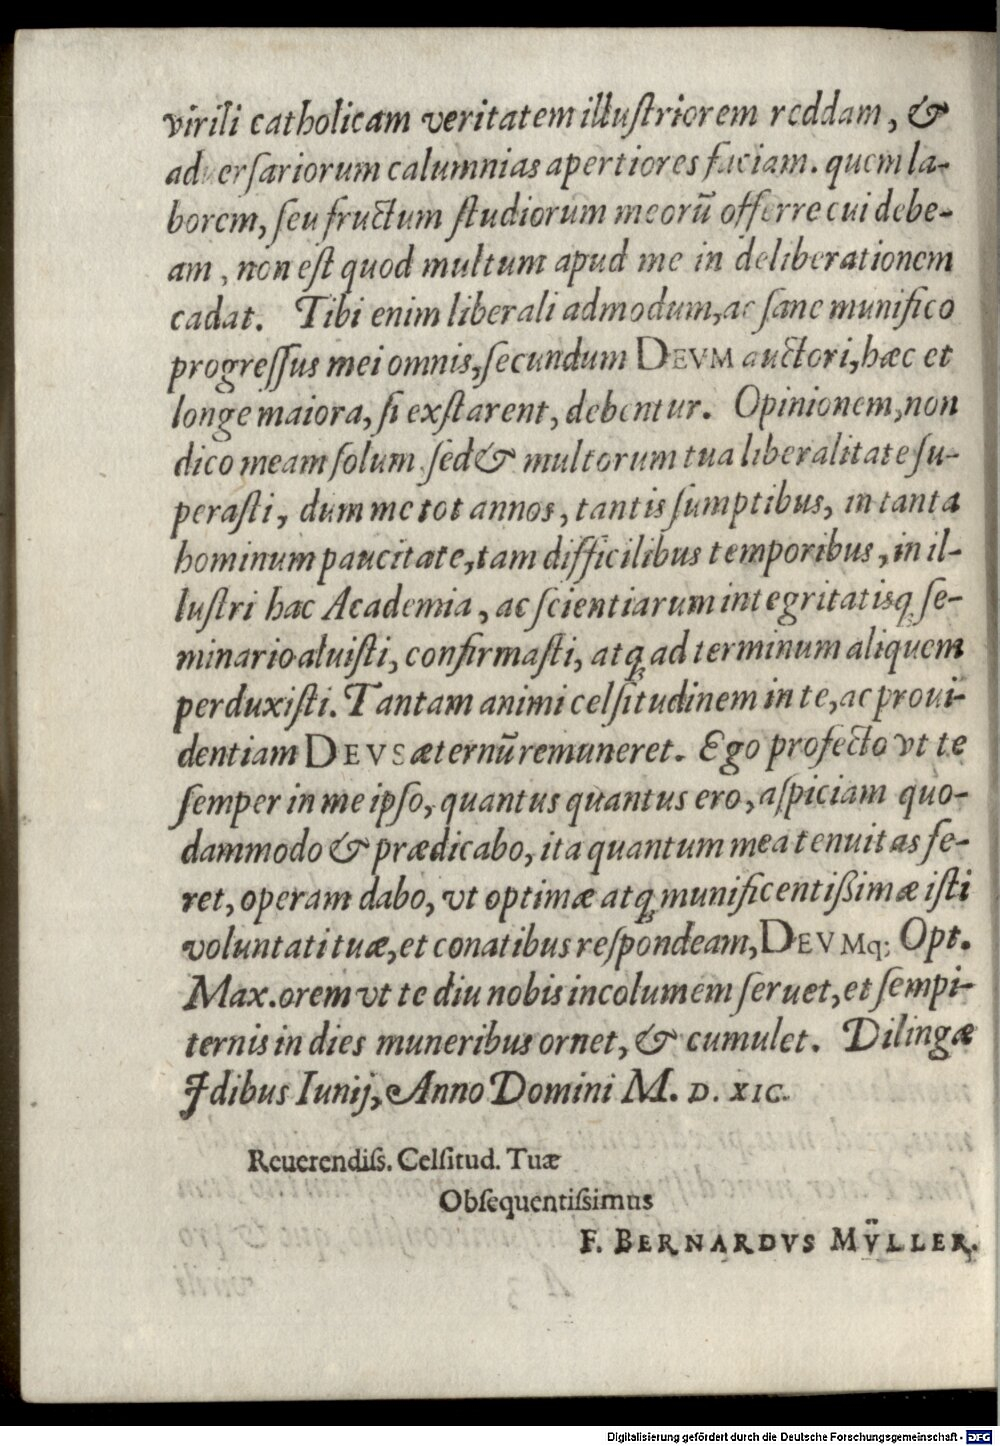 virili catholicam veritatem illuſtriorem reddam, &
adverſariorum calumnias apertiores faciam. quem la-
borem, ſeu fructum ſtudiorum meorū offerre cui debe-
am, non eſt quod multum apud me in deliberationem
cadat. Tibi enim liberali admodum, ac ſane munifico
progreſſus mei omnis, ſecundum DEVM auctori, hæc et
longe maiora, ſi exſtarent, debentur. Opinionem, non
dico meam ſolum, ſed & multorum tua liberalitate ſu-
peraſti, dum me tot annos, tantis ſumptibus, in tanta
hominum paucitate, tam difficilibus temporibus, in il-
luſtri hac Academia, ac ſcientiarum integritatisq̃ ſe-
minario aluiſti, confirmaſti, atq̃ ad terminum aliquem
perduxiſti. Tantam animi celſitudinem in te, ac proui-
dentiam DEVS æternū remuneret. Ego profecto vt te
ſemper in me ipſo, quantus quantus ero, aſpiciam quo-
dammodo & prædicabo, ita quantum mea tenuitas fe-
ret, operam dabo, vt optimæ atq̃ munificentißimæ iſti
voluntati tuæ, et conatibus reſpondeam, DEVMq; Opt.
Max. orem vt te diu nobis incolumem ſeruet, et ſempi-
ternis in dies muneribus ornet, & cumulet. Dilingæ
Idibus Iunij, Anno Domini M. D. XIC.
Reuerendiſs. Celſitud. Tuæ
Obſequentiſsimus
F. BERNARDVS MV̈LLER.
Digitalisierung gefördert durch die Deutsche Forschungsgemeinschaft - DFG